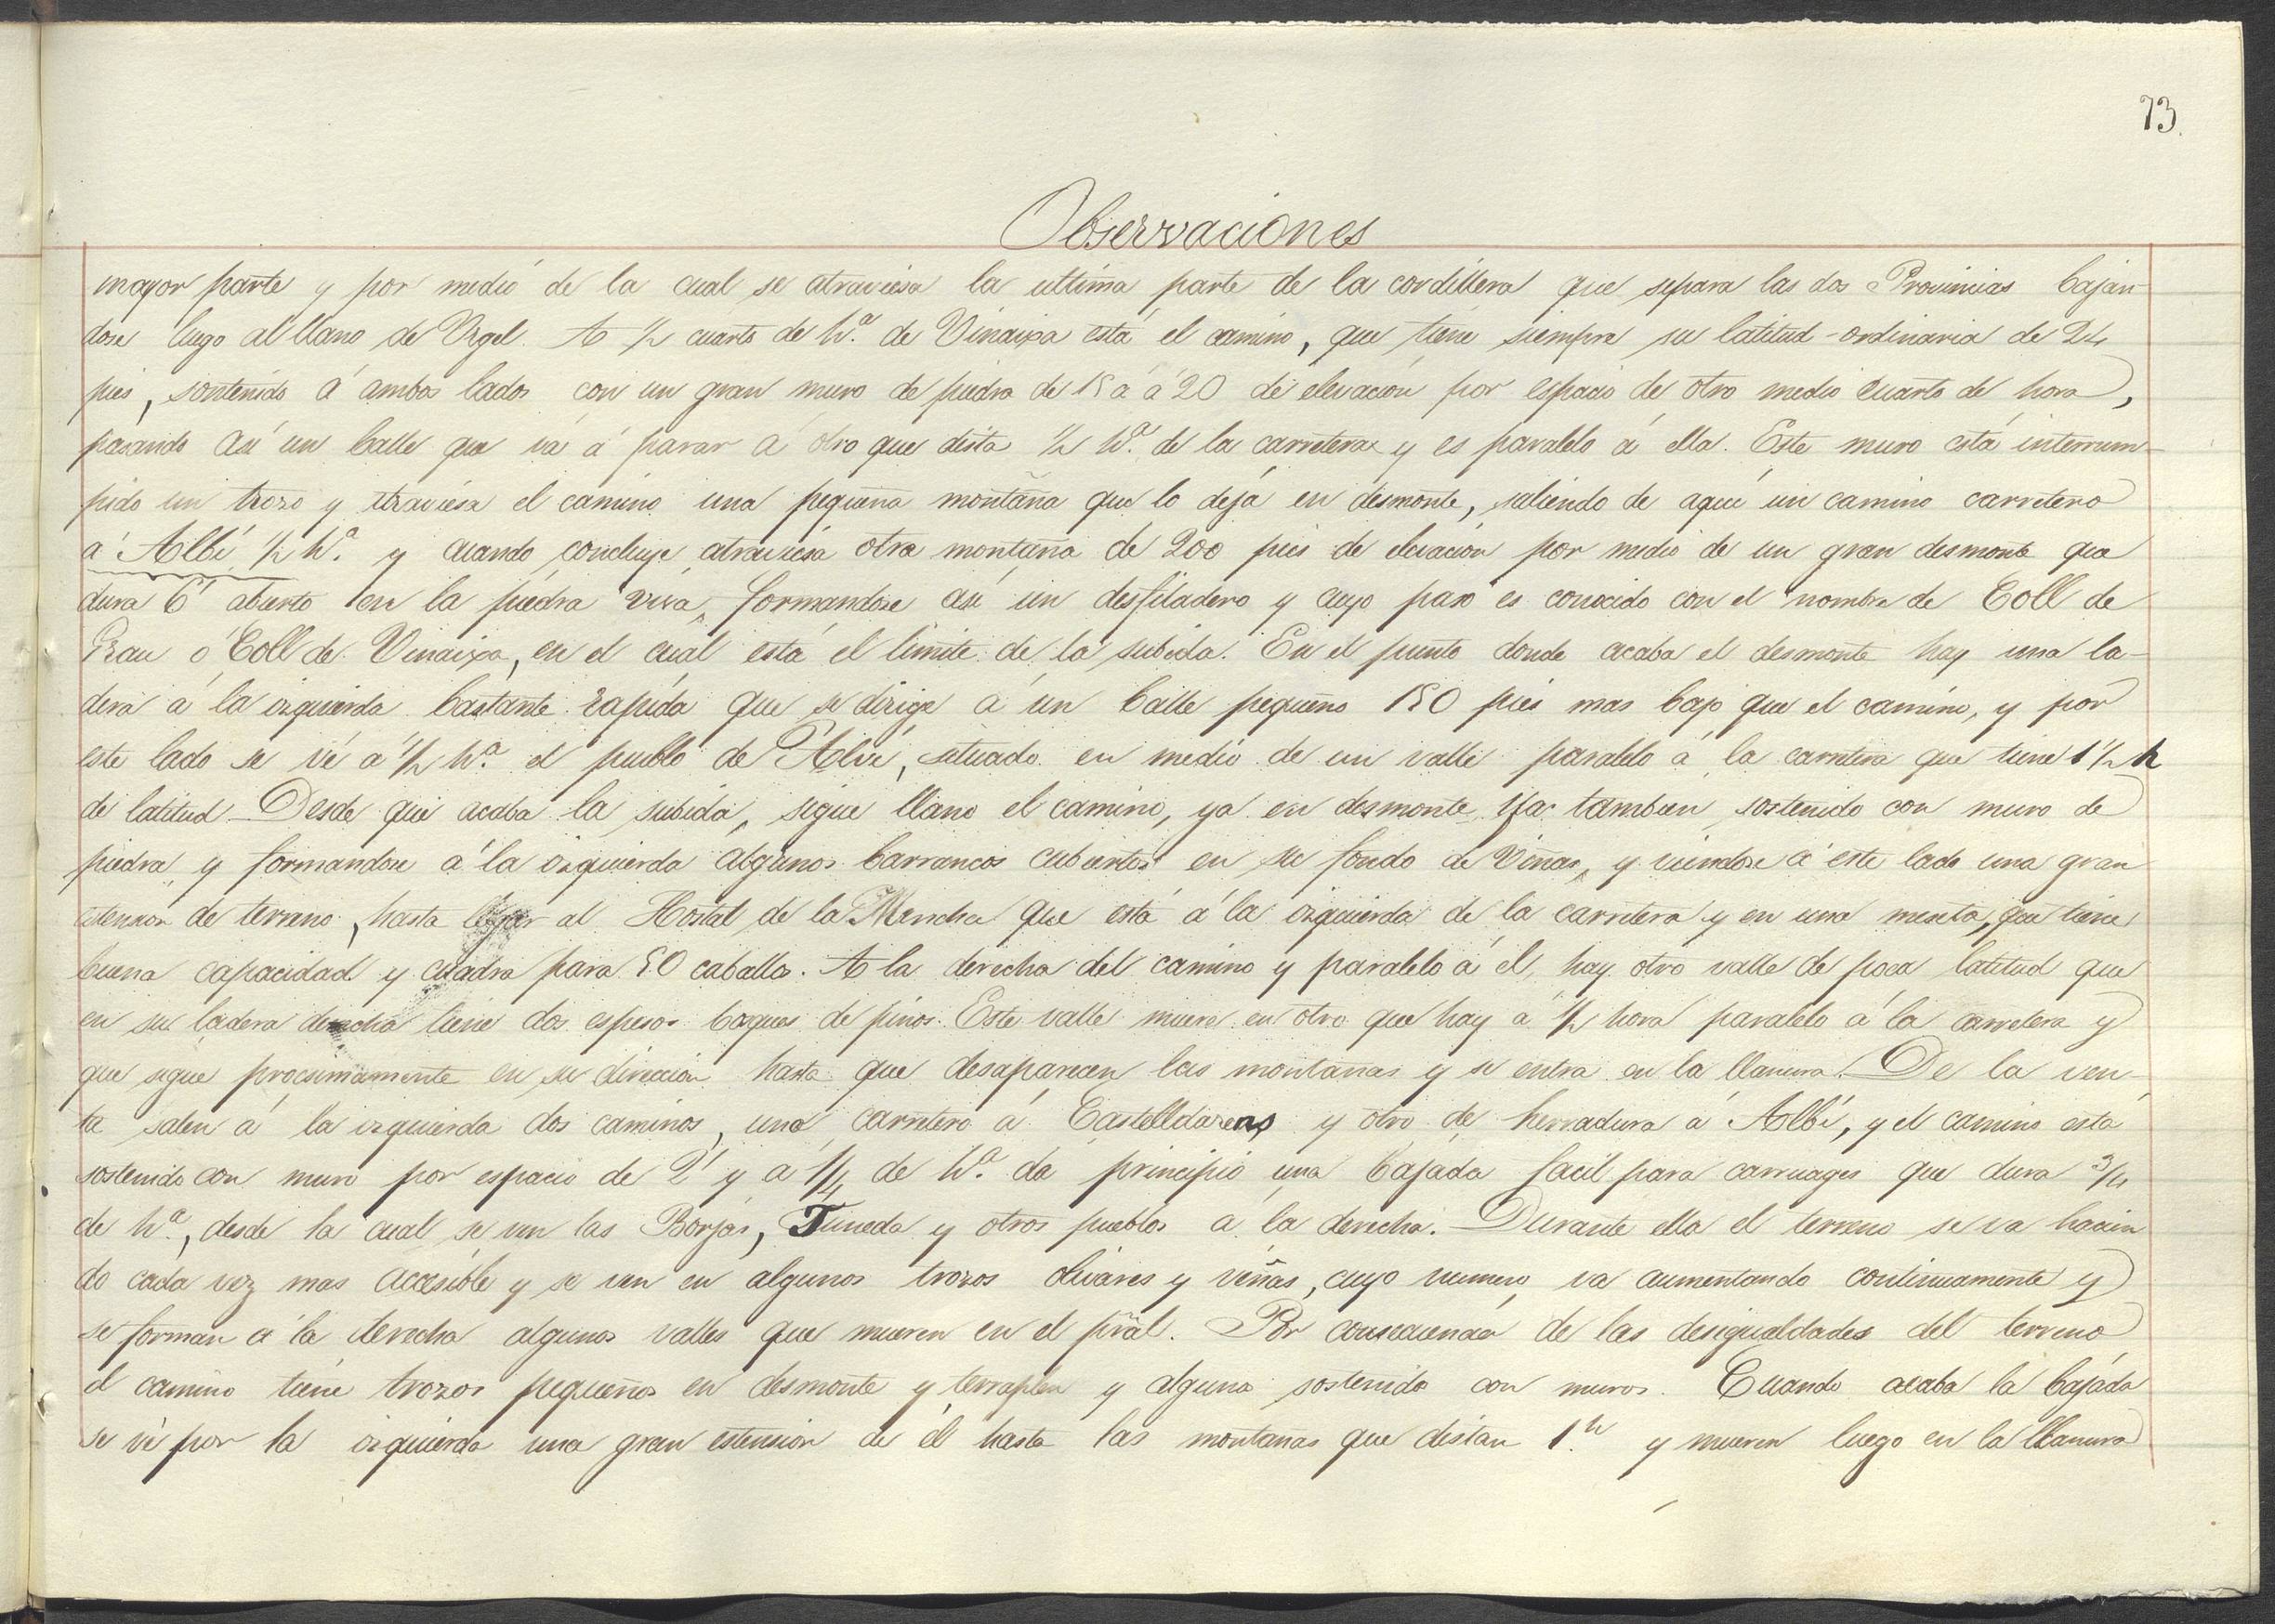 73.
Observaciones
mayor parte y por medio de la cual se atraviesa la ultima parte de la cordillera que separa las dos Provincias bajan-
dose luego al llano de Urgel. A ½ cuarto de hª. de Vinaixa está el camino, que tiene siempre su latitud ordinaria de 24
pies, sostenido á ambos lados con un gran muro de piedra de 15 á 20 de elevación por espacio de otro medio cuarto de hora,
pasando asi un balle que vá á parar a otro que dista ½ hª. de la carretera y es paralelo á ella. Este muro está interrum-
pido un trozo y atraviesa el camino una pequeña montaña que lo deja en desmonte, saliendo de aqui un camino carretero
á Albí ½ hª. y cuando concluye atraviesa otra montaña de 200 pies de elevación por medio de un gran desmonte que
dura 6' abierto en la piedra viva, formandose asi un desfiladero y cuyo paso es conocido con el nombre de Coll de
Grau ó Coll de Vinaixa, en el cual está el limite de la subida. En el punto donde acaba el desmonte hay una la-
dera á la izquierda bastante rapida que se dirige á un balle pequeño 150 pies mas bajo que el camino, y por
este lado se vé á ½ hª. el pueblo de Albí, situado en medio de un valle paralelo á la carretera que tiene 1 ½ h
de latitud. Desde que acaba la subida, sigue llano el camino, ya en desmonte ya tambien sostenido con muro de
piedra y formandose á la izquierda algunos barrancos cubiertos en su fondo de viñas, y viendose á este lado una gran
estension de terreno, hasta llegar al Hostal de la Mencha que está á la izquierda de la carretera y en una meseta, que tiene
buena capacidad y cuadra para 50 caballos. A la derecha del camino y paralelo á el, hay otro valle de poca latitud que
en su ladera derecha tiene dos espesos bosques de pinos. Este valle muere en otro que hay á ½ hora paralelo á la carretera y
que sigue procsimamente en su direccion hasta que desaparecen las montañas y se entra en la llanura. De la ven-
ta salen á la izquierda dos caminos, uno carretero á Castelldarens y otro de herradura á Albí, y el camino está
sostenido con muro por espacio de 2' y á ¼ de hª. da principio una bajada facil para carruages que dura ¾
de hª., desde la cual se ven las Borjas, Juneda y otros pueblos á la derecha. Durante ella el terreno se va hacien
do cada vez mas accesible y se ven en algunos trozos olivares y viñas, cuyo numero va aumentando continuamente y
se forman á la derecha algunos valles que mueren en el pral. Por consecuencia de las desigualdades del terreno
el camino tiene trozos pequeños en desmonte y terraplen y alguno sostenido con muros. Cuando acaba la bajada
se vé por la izquierda una gran estension de él hasta las montañas que distan 1.h y mueren luego en la llanura